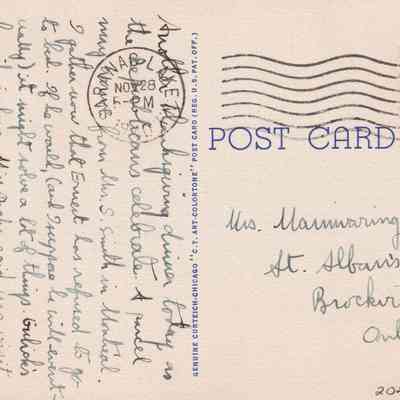 Another Thanksgiving dinner today as
the Republicans celebrate. A parcel
may come from Mrs. S. Smith in Montreal.
I gather now that Ernest has refused to go
to bed. If he would, (and I suppose he will event-
ually) it might solve a lot of things.
NAPLES
NOV 28
PM
GENUINE CURTEICH-CHICAGO "C.T. ART-COLORTONE" POST CARD (REG. U.S. PAT. OFF.)
POST CARD
Mrs. Mainwaring
St. Alban's
Brockvi
Ont